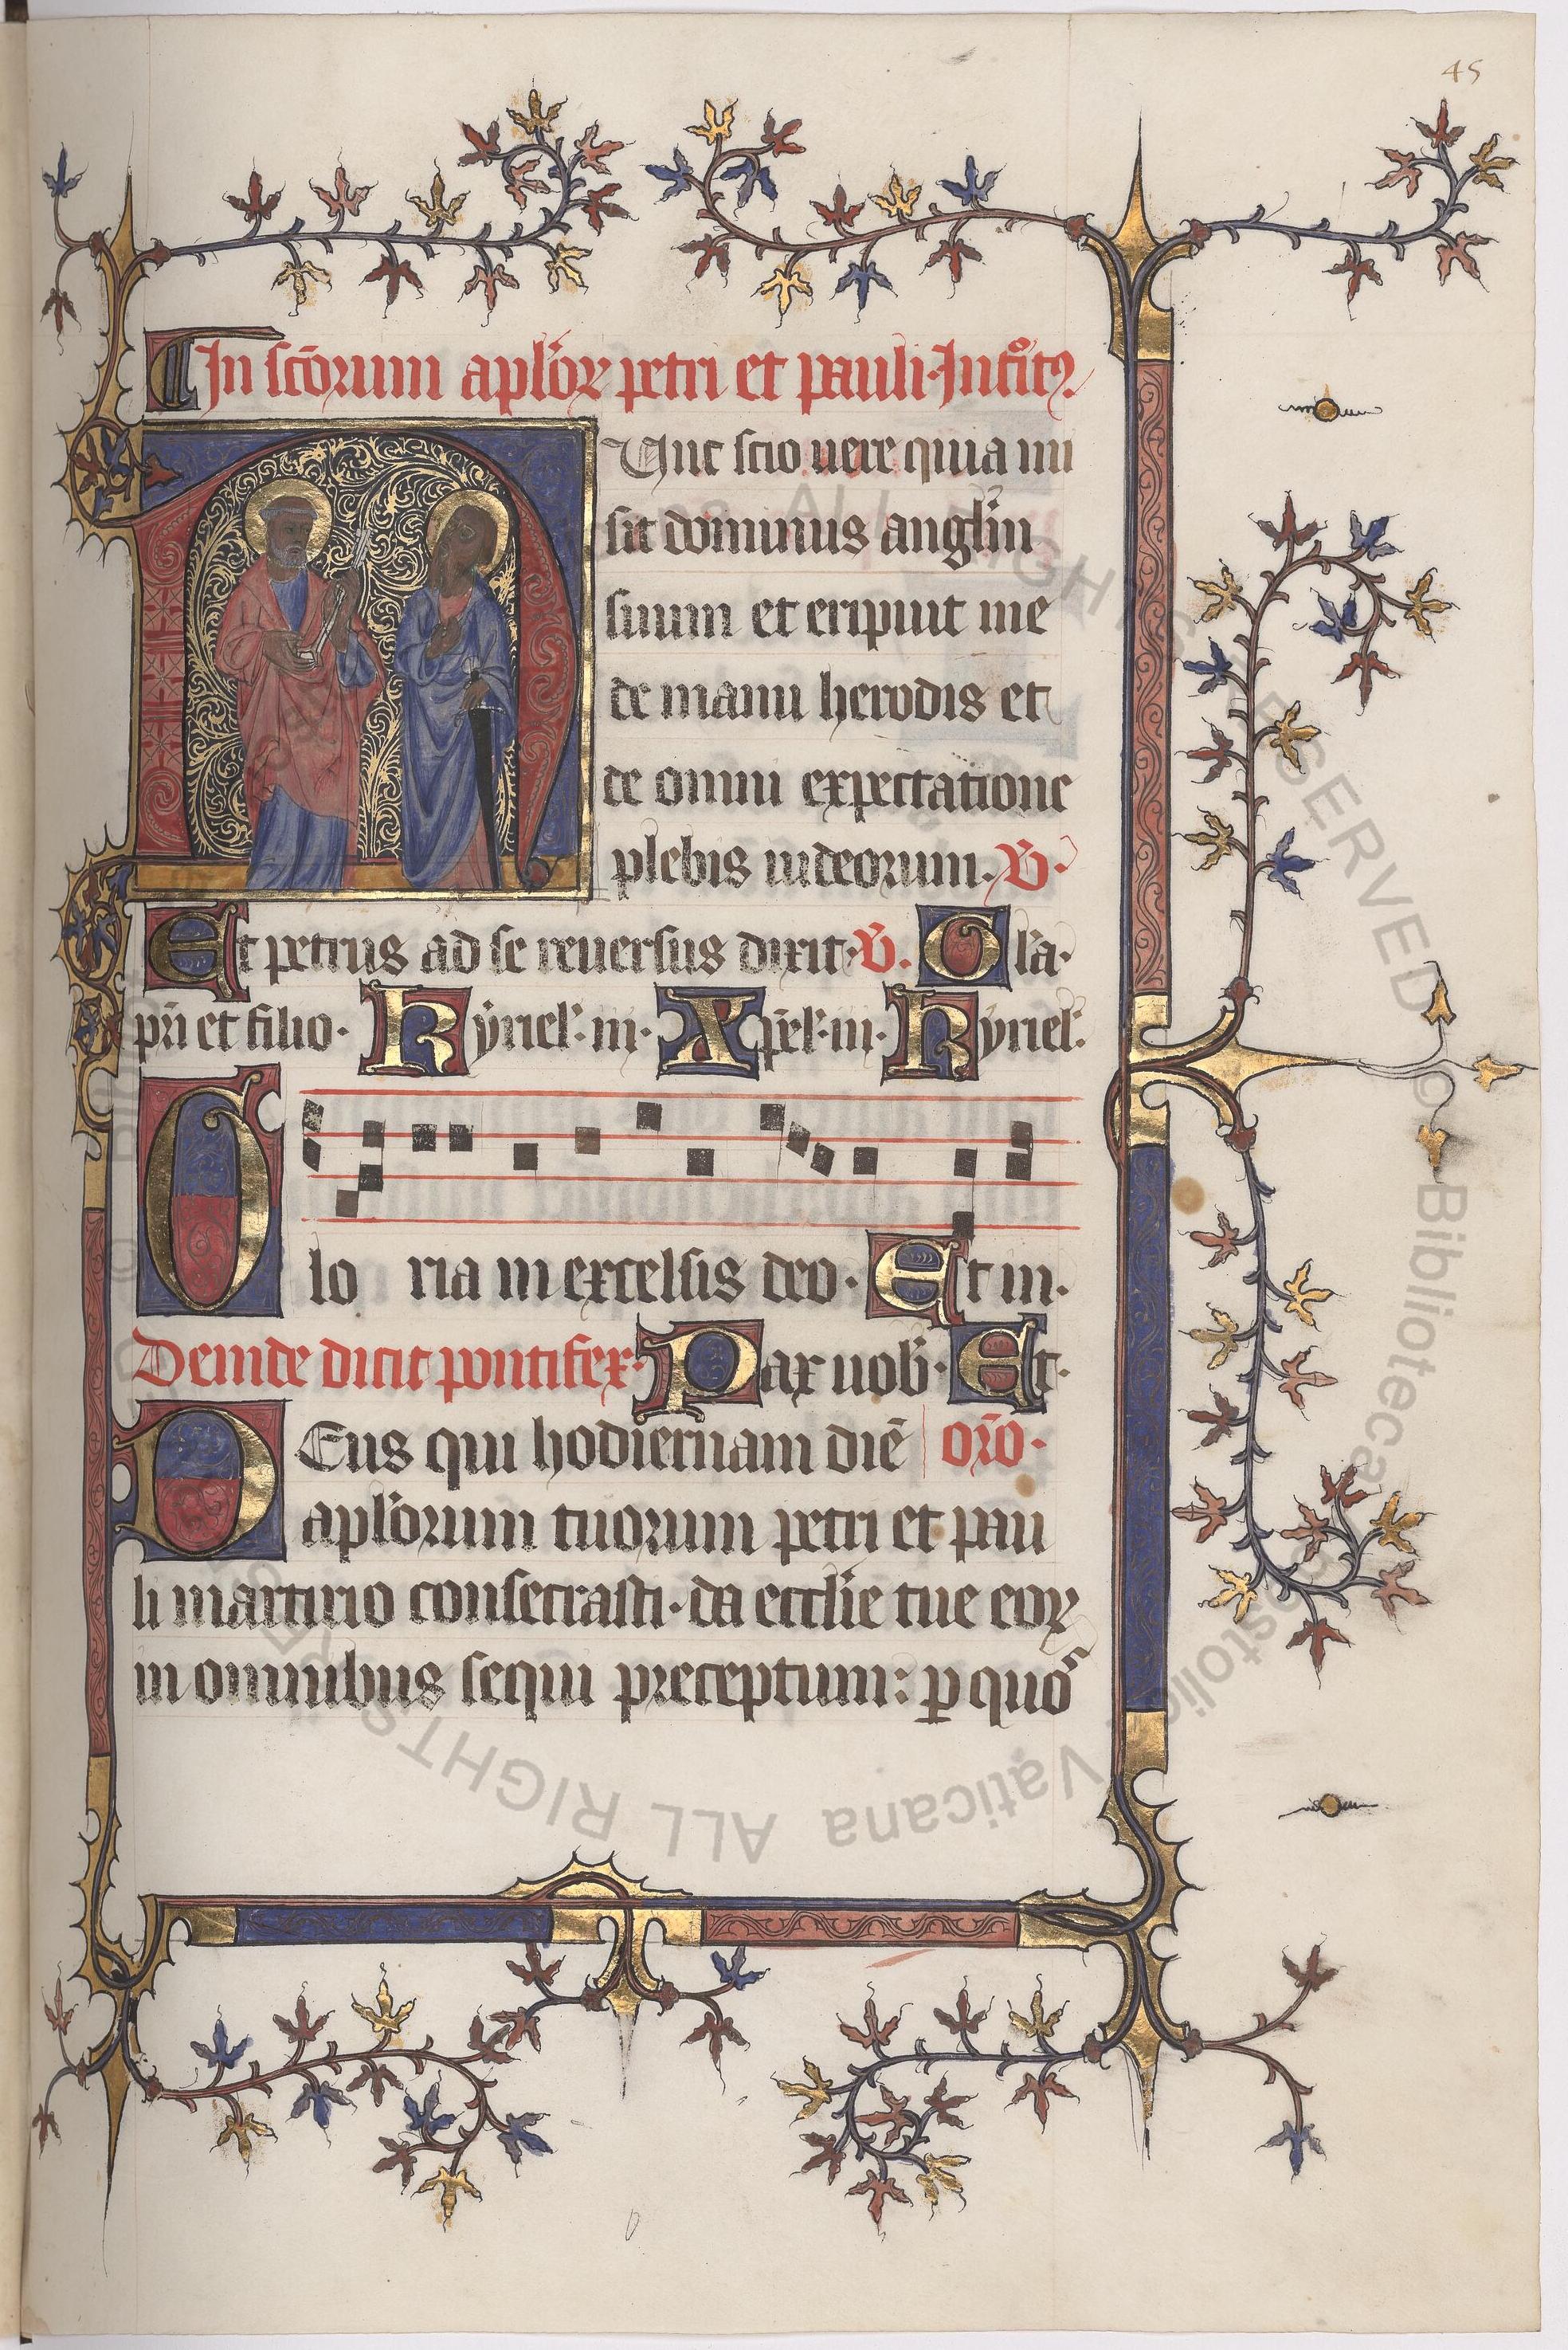 45
In scōrum aplōꝝ petri et pauli. Introitꝰ.
NUnc scio uere quia mi
sit dominus anglm̄
suum et eripuit me
de manu herodis et
de omni expectatione
plebis iudeorum. V̄.
Et petrus ad se reuersus dixit. V̄. Glā.
pr̄i et filio. Kyriel. iii. Xpēl. iii. Kyriel.
Glo ria in excelsis deo. Et in.
Deinde dicit pontifex. Pax uob̄. Et.
DEus qui hodiernam diē orō.
aplōrum tuorum petri et pau
li martirio consecrasti. da eccl̄ie tue eoꝝ
in omnibus sequi preceptum: ꝑ quos
© Biblioteca Apostolica Vaticana ALL RIGHTS RESERVED